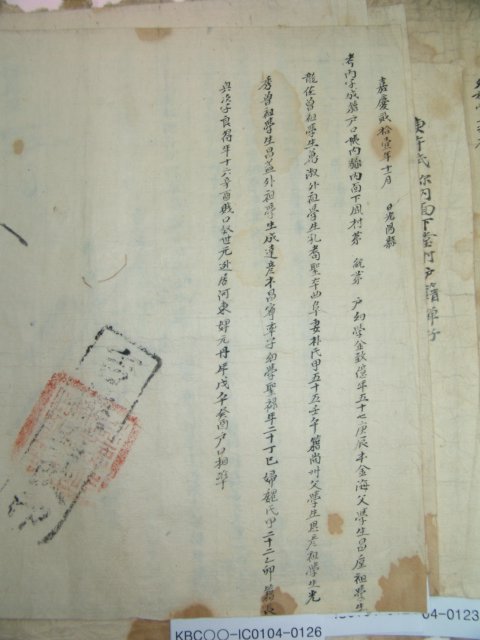 嘉慶貳拾壹年十一月　日光陽縣
考丙子成籍戶口帳內縣內面下凤村第　統第　戶幼學金致億年五十七庚辰本金海父學生昌屋祖學生
龍佐曾祖學生萬淑外祖學生孔胄聖本曲阜妻朴氏甲五十五壬午籍尚州父學生與彦祖學生光
秀曾祖學生昌益外祖學生成達彦本昌寧率子幼學聖禄年二十丁巳婦魏氏甲二十二乙卯籍長
興次子良得年十六辛酉賤口奴世元逃居河東婢元丹年戊午癸酉戶口相準
內面下
戶籍單子
KBC○○-IC0104-0126
04-0123